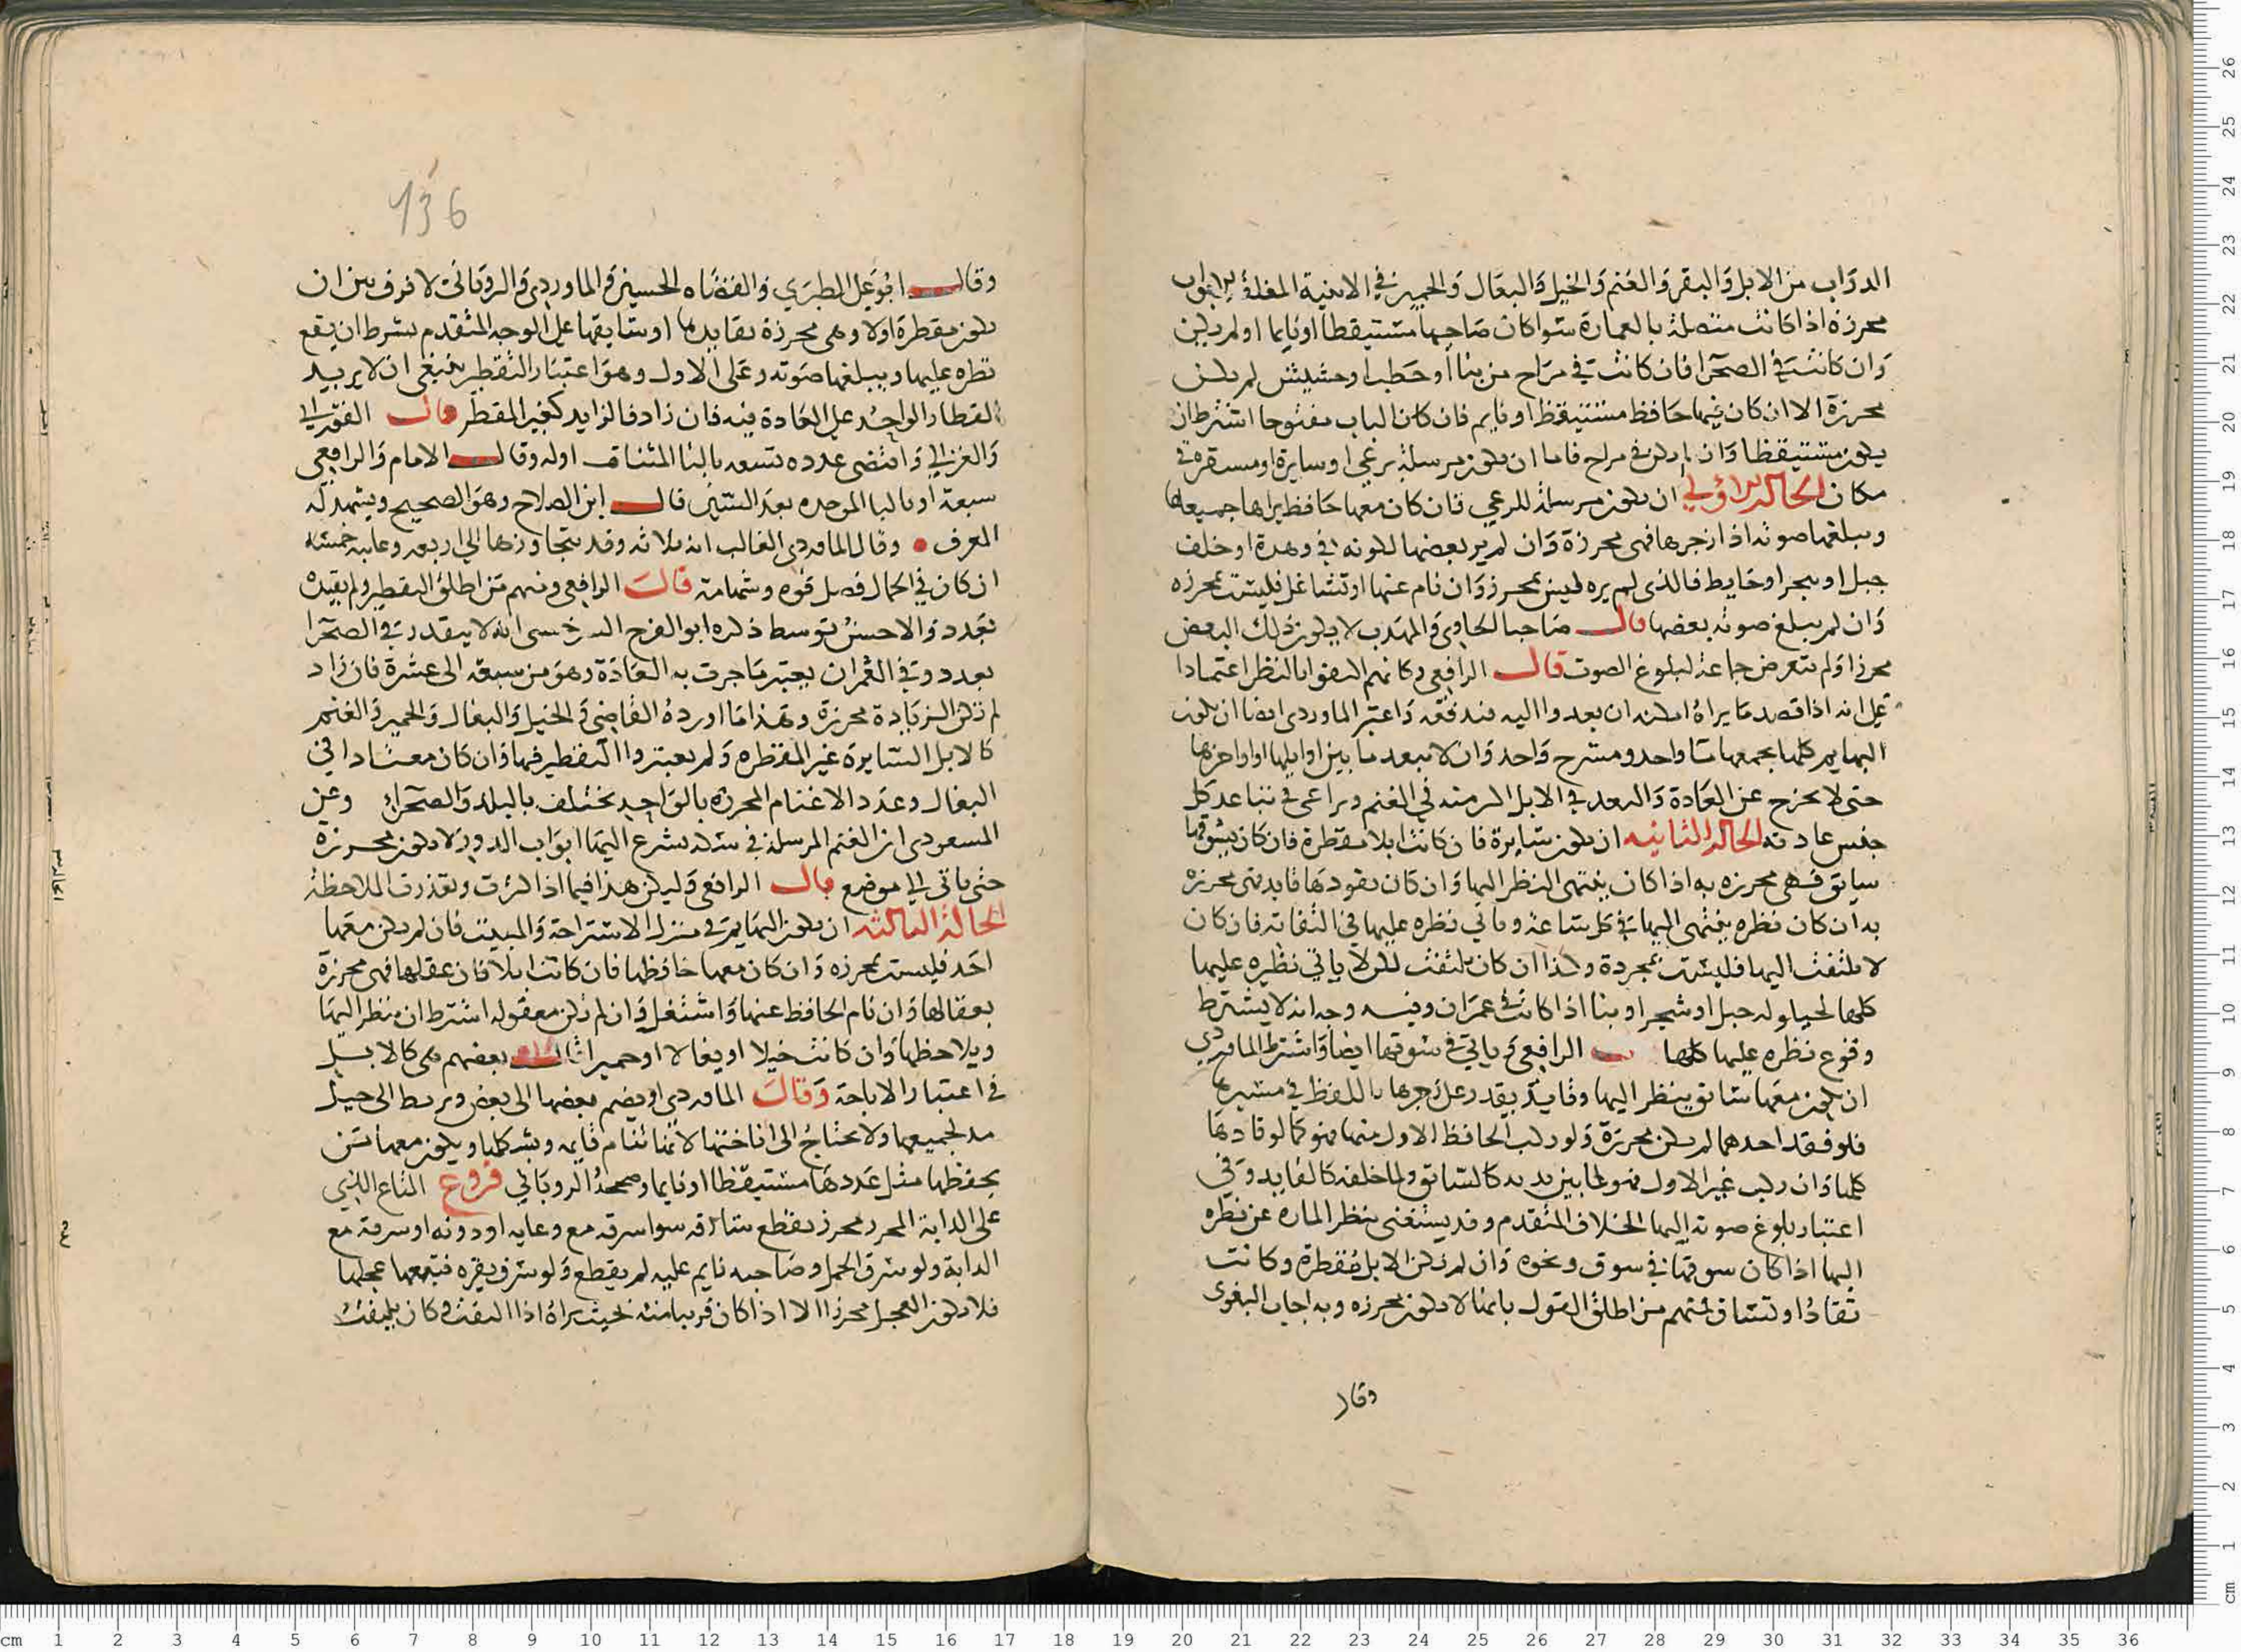 الدواب من الابل والبقر والغنم والخيل والبغال والحمير في الابنية المغلقة الابواب
محرزة اذا كانت متصلة بالعمارة سوا كان صاحبها مستيقظا او نايما او لم يكن
وان كانت في الصحرا فان كانت في مراح من بنا او حطب او حشيش لم يكن
محرزة الا ان كان فيها حافظ مستيقظ او نايم فان كان الباب مفتوحا اشترط ان
يكون مستيقظا وان لم يكن في مراح فاما ان يكون مرسلة ترعي او سايرة او مستقرة في
مكان الحالة الاولي ان يكون مرسلة للرعي فان كان معها حافظ يراها جميعها
ويبلغها صوته اذا زجرها فهي محرزة وان لم ير بعضها لكونه في وهدة او خلف
جبل او شجر او حايط فالذي لم يره ليس بمحرز وان نام عنها او تشاغل فليست بمحرزه
وان لم يبلغ صوته بعضها قال صاحبا الحاوي والمهذب لا يكون ذلك البعض
محرزا ولم يتعرض جماعة لبلوغ الصوت قال الرافعي وكانهم اكتفوا بالنظر اعتمادا
علي انه اذا قصد ما يراه امكنه ان يعدوا اليه فيدفعه واعتبر الماوردي ايضا ان يكون
البهايم كلها يجمعها ما واحد ومسرح واحد وان لا يبعد ما بين اوايلها واواخرها
حتى لا يخرج عن العادة والبعد في الابل اكثر منه في الغنم ويراعى في تباعد كل
جنس عادته الحالة الثانيه ان يكون سايرة فان كانت ابلا مقطرة فان كان يسوقها
سايق فهي محرزه به اذا كان ينتهي النظر اليها وان كان يقودها قايد فهي محرزه
به ان كان نظره ينتهى اليها في كل ساعة وياتي نظره عليها في التفاته فان كان
لا يلتفت اليها فليست بمحرزة وكذا ان كان يلتفت لكن لا ياتي نظره عليها
كلها لحيلولة جبل او شجر او بنا اذا كانت في عمران وفيه وجه انه لا يشترط
وقوع نظره عليها كلها الرافعي وياتي في سوقها ايضا واشترط الماوردي
ان يكون معها سايق ينظر اليها وقايد يقدر على زجرها باللفظ في مسيرها
فلو فقد احدهما لم يكن محرزة ولو ركب الحافظ الاول منها فهو كما لو قادها
كلها وان ركب غير الاول فهو لما بين يديه كالسايق ولما خلفه كالقايد وفي
اعتبار بلوغ صوته اليها الخلاف المتقدم وقد يستغنى بنظر الماره عن نظره
اليها اذا كان سوقها في سوق ونحوه وان لم يكن الابل مقطرة وكانت
تقاد او تساق فمنهم من اطلق القول بانها لا يكون محرزه وبه اجاب البغوى
وقال
136
وقال ابو علي الطبري والقضاه الحسين والماوردي والروياني لا فرق بين ان
يكون مقطرة اولا وهي محرزة بقايدها او سايقها على الوجه المتقدم بشرط ان يقع
نظره عليها ويبلغها صوته وعلى الاول وهو اعتبار التقطير ينبغي ان لا يزيد
القطار الواحد على العادة فيه فان زاد فالزايد كغير المقطر قال الفوراني
والغزالي واقتضى عدده تسعه بالتا المثناة اوله وقال الامام والرافعي
سبعة او بالبا الموحده بعد السين قال ابن الصلاح وهو الصحيح ويشهد له
العرف وقال الماوردي الغالب انه ثلاثه وقد يتجاوزها الى اربعه وغايته خمسه
ان كان في الجمال فضل قوه وشهامة قال الرافعي ومنهم من اطلق التقطير ولم يقيده
بعدد والاحسن توسط ذكره ابو الفرج السرخسي انه لا يتقدر في الصحرا
بعدد وفي العمران يعتبر ما جرت به العادة وهو من سبعه الى عشرة فان زاد
لم تكن الزيادة محرزة وهذا ما اورده القاضي في الخيل والبغال والحمير والغنم
كالابل السايرة غير المقطره ولم يعتبروا التقطير فيها وان كان معتادا في
البغال وعدد الاغنام المحرزه بالواحد يختلف بالبلد والصحرا وعن
المسعودى ان الغنم المرسلة في سكة يشرع اليها ابواب الدور لا يكون محرزة
حتى ياتي الي موضع قال الرافعي وليكن هذا فيما اذا كثرت وتعذرت الملاحظة
الحالة الثالثه ان يكون البهايم في منزل الاستراحة والمبيت فان لم يكن معها
احد فليست بمحرزه وان كان معها حافظها فان كانت ابلا فان عقلها فهي محرزة
بعقالها وان نام الحافظ عنها واشتغل وان لم تكن معقوله اشترط ان ينظر اليها
ويلاحظها وان كانت خيلا او بغالا او حميرا بعضهم هي كالابل
في اعتبار الاباحة وقال الماوردي او يضم بعضها الى بعض ويربط الى حبل
مد لجميعها ولا يحتاج الى اناختها لانها تنام قايمه ويشد كلها ويكون معها من
يحفظها مثل عددها مستيقظا او نايما وصححه الروياني فروع المتاع الذي
على الدابة المحرزة محرز يقطع سارقه سوا سرقه مع وعايه او دونه او سرقه مع
الدابة ولو سرق الجمل وصاحبه نايم عليه لم يقطع ولو سرق بقره فتبعها عجلها
فلا يكون العجل محرزا الا اذا كان قريبا منه بحيث يراه اذا التفت وكان يلتفت